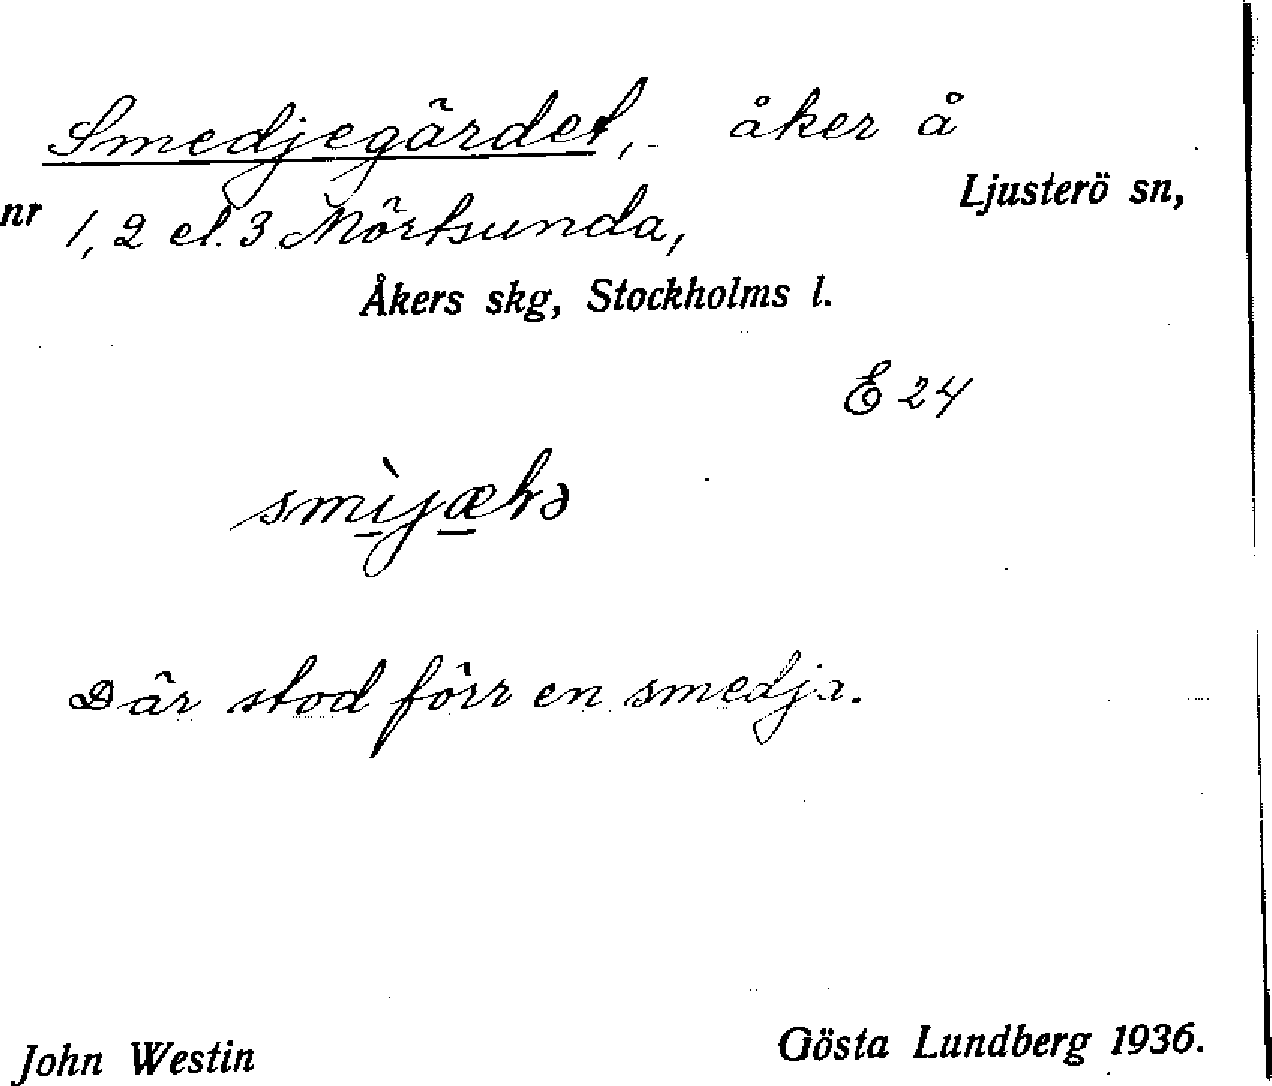 Smedjegärdet, åker å
Ljusterö sn,
nr 1, 2 el. 3 Mörtsunda,
Åkers skg, Stockholms l.
E 24
Där stod förr en smedja.
John Westin Gösta Lundberg 1936.